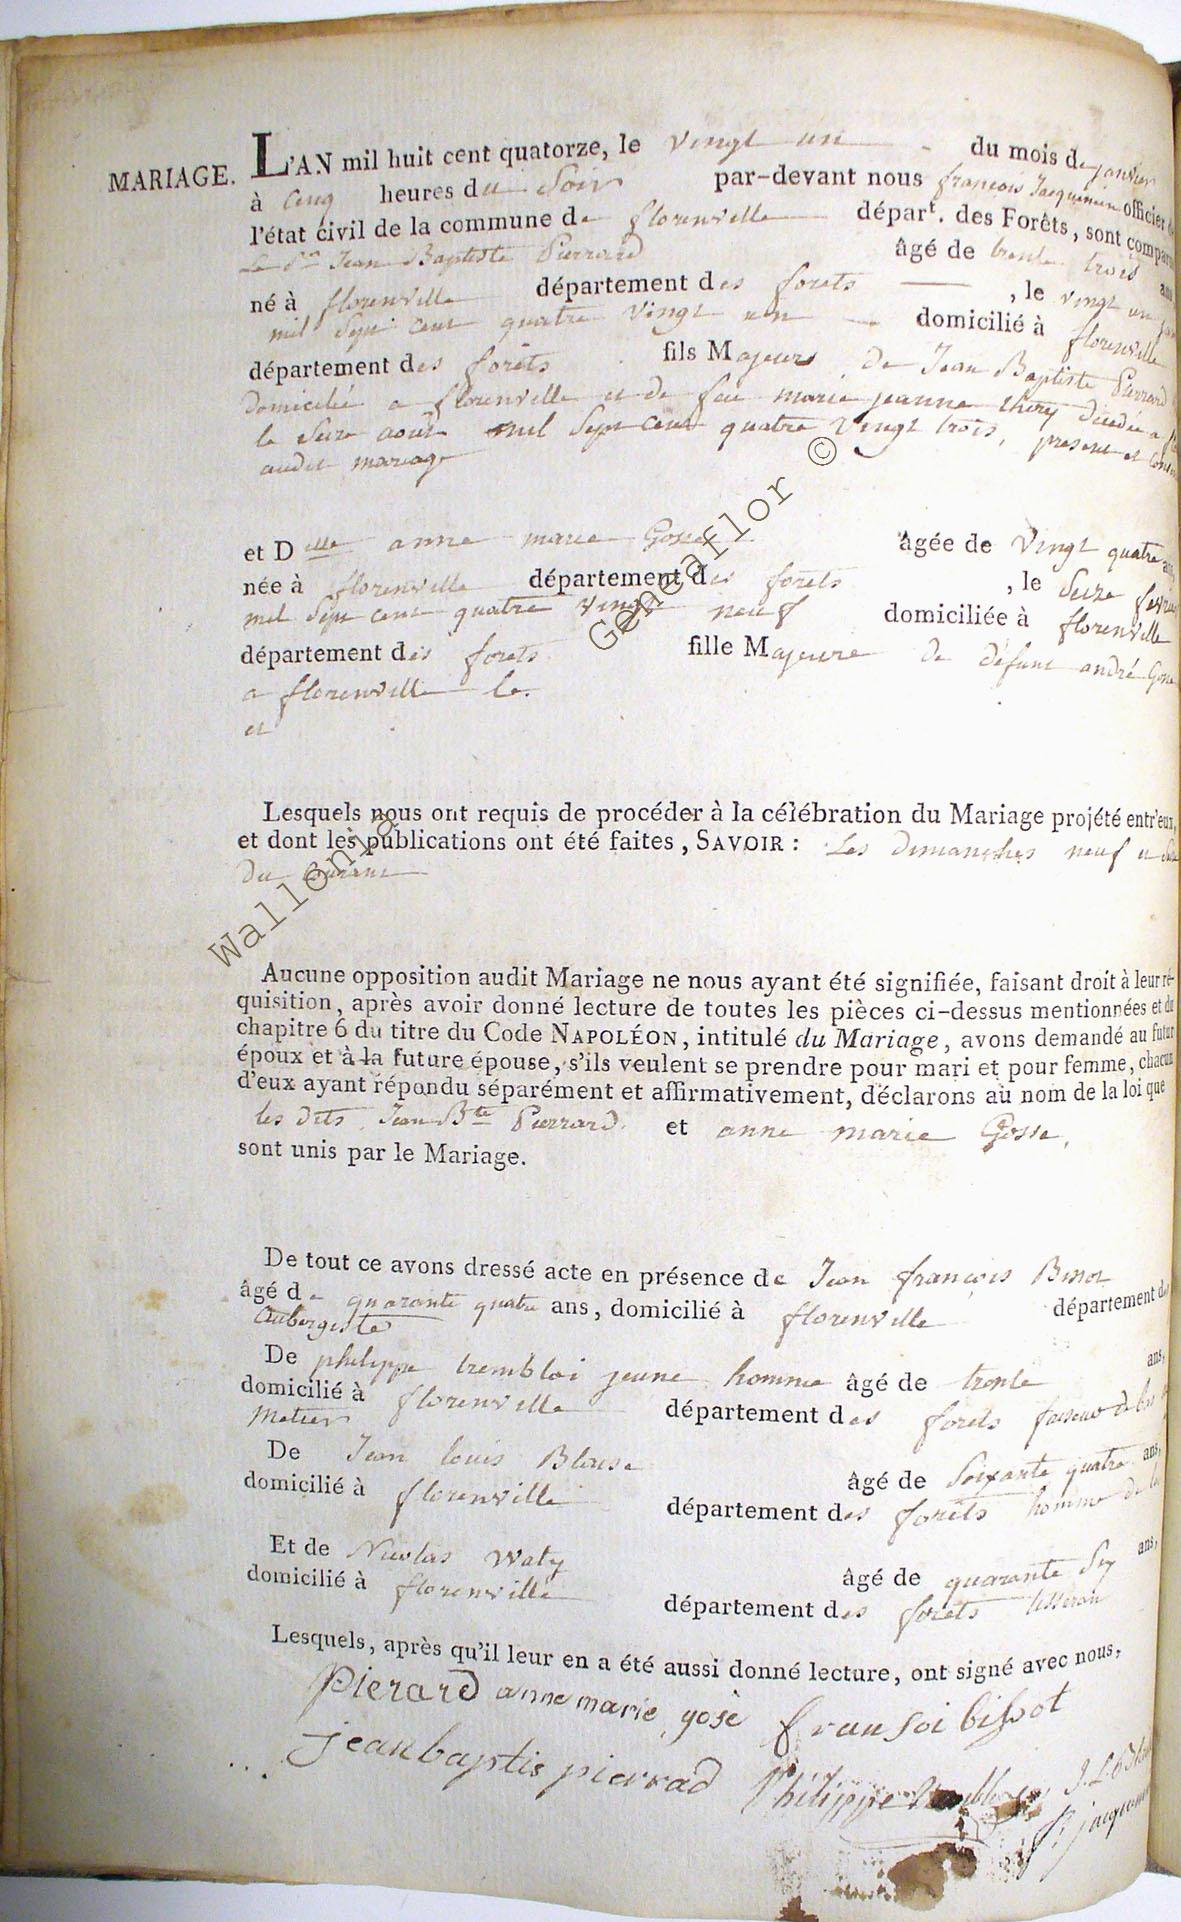 MARIAGE. L'AN mil huit cent quatorze, le vingt un du mois de janvier
à cinq heures du Soir par-devant nous françois Jacquemin officier de
l'état civil de la commune de florenville départ. des Forêts, sont comparus
Le Sr Jean Baptiste Pierrard âgé de trente trois ans
né à florenville département des forets, le vingt un
mil Sept cent quatre vingt un domicilié à florenville
département des forêts fils Majeur de Jean Baptiste Pierrard
domicilié a florenville et de feu marie jeanne thiry décédée a
le Seize août mil Sept cent quatre vingt trois, présent et
audit mariage
et Dlle anne marie Gosse âgée de vingt quatre ans
née à florenville département des forets, le Seize fevrier
mil Sept cent quatre vingt neuf domiciliée à florenville
département des forets fille Majeure de défunt andré Gosse
a florenville le.
et
Lesquels nous ont requis de procéder à la célébration du Mariage projété entr'eux,
et dont les publications ont été faites, SAVOIR : Les dimanches neuf et
du courant
Aucune opposition audit Mariage ne nous ayant été signifiée, faisant droit à leur ré-
quisition, après avoir donné lecture de toutes les pièces ci-dessus mentionnées et du
chapitre 6 du titre du Code NAPOLÉON, intitulé du Mariage, avons demandé au futur
époux et à la future épouse, s'ils veulent se prendre pour mari et pour femme, chacun
d'eux ayant répondu séparément et affirmativement, déclarons au nom de la loi que
les dits Jean Bte Pierrard et anne marie Gosse,
sont unis par le Mariage.
De tout ce avons dressé acte en présence de Jean françois Bissot
âgé de quarante quatre ans, domicilié à florenville département des
Aubergiste
De philippe trembloi jeune homme âgé de trente ans,
domicilié à florenville département des forets faiseur de bas
metier
De Jean louis Blaise âgé de Soixante quatre ans,
domicilié à florenville département des forets homme de
Et de Nicolas Waty âgé de quarante Six ans,
domicilié à florenville département des forets tisseran
Lesquels, après qu'il leur en a été aussi donné lecture, ont signé avec nous,
Pierard anne marie gose fransoi bissot
jeanbaptis pierrad Philippe J. L. B
jacquemin
Wallonia Geneaflor ©